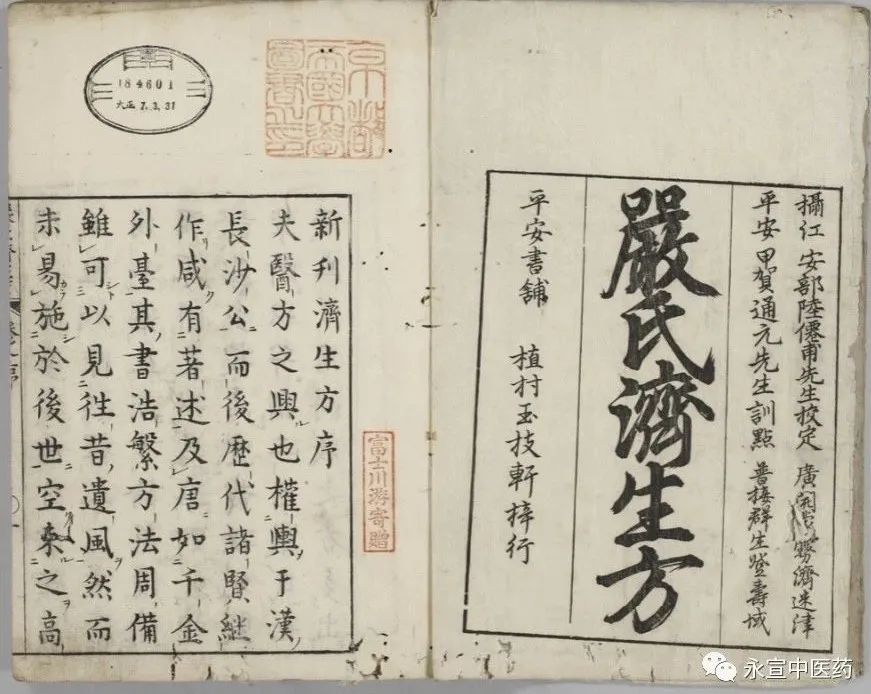 攝江 安部陸僊甫先生校定 廣開 霧濟迷津
平安 甲賀通元先生訓點 普接群生登壽域
嚴氏濟生方
平安書舖 植村玉枝軒梓行
184601
大正 7.3.31
京都帝國大學圖書之印
富士川游寄贈
新刋濟生方序
夫醫方之興也權輿于漢
長沙公而後歷代諸賢継
作咸有著述及唐如千金
外臺其書浩繁方法周備
雖可以見徃昔遺風然而
未易施於後世空束之高
永宣中医药